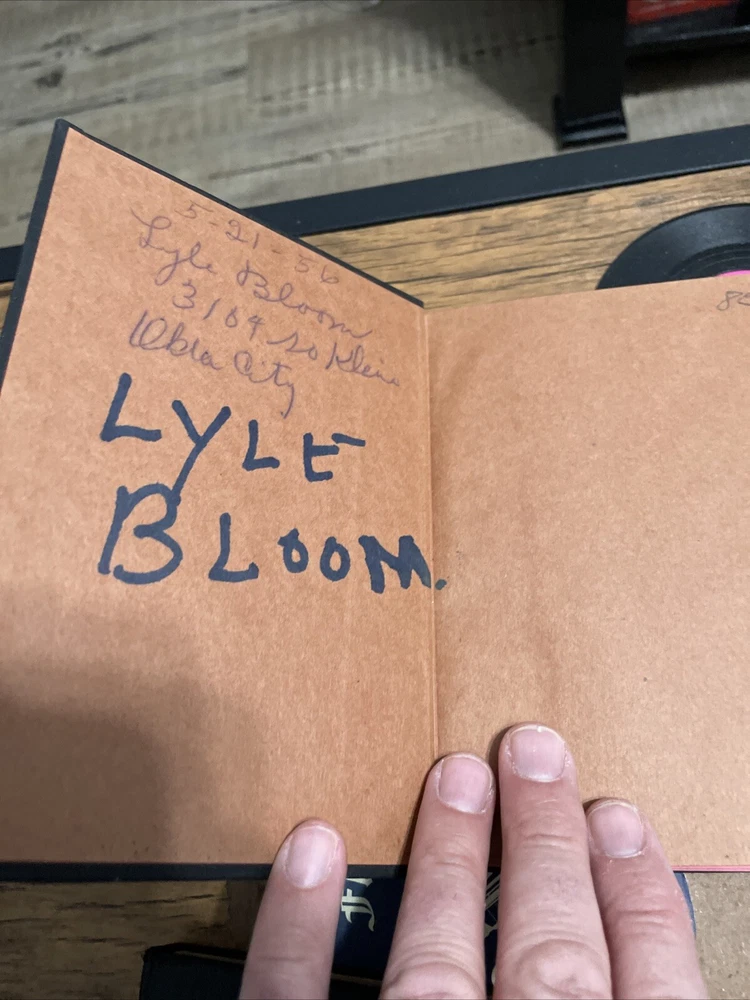 5-21-56
Lyle Bloom
3109 So Klein
Okla City
LYLE
BLOOM.